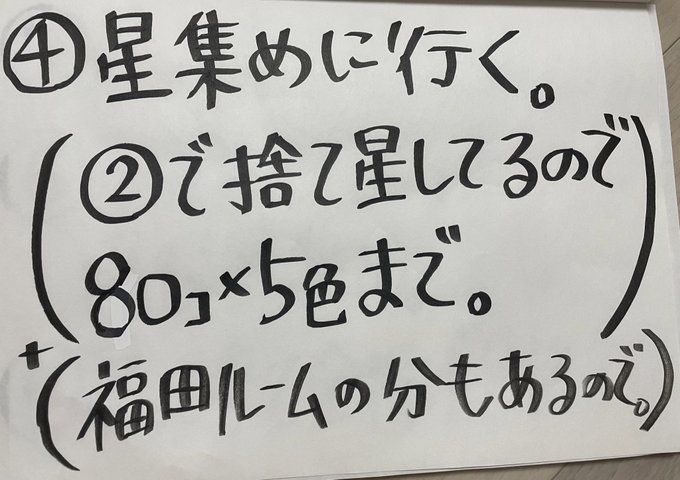 ④星集めに行く。
(②で捨て星してるので
80コ×5色まで。)
+(福田ルームの分もあるので。)